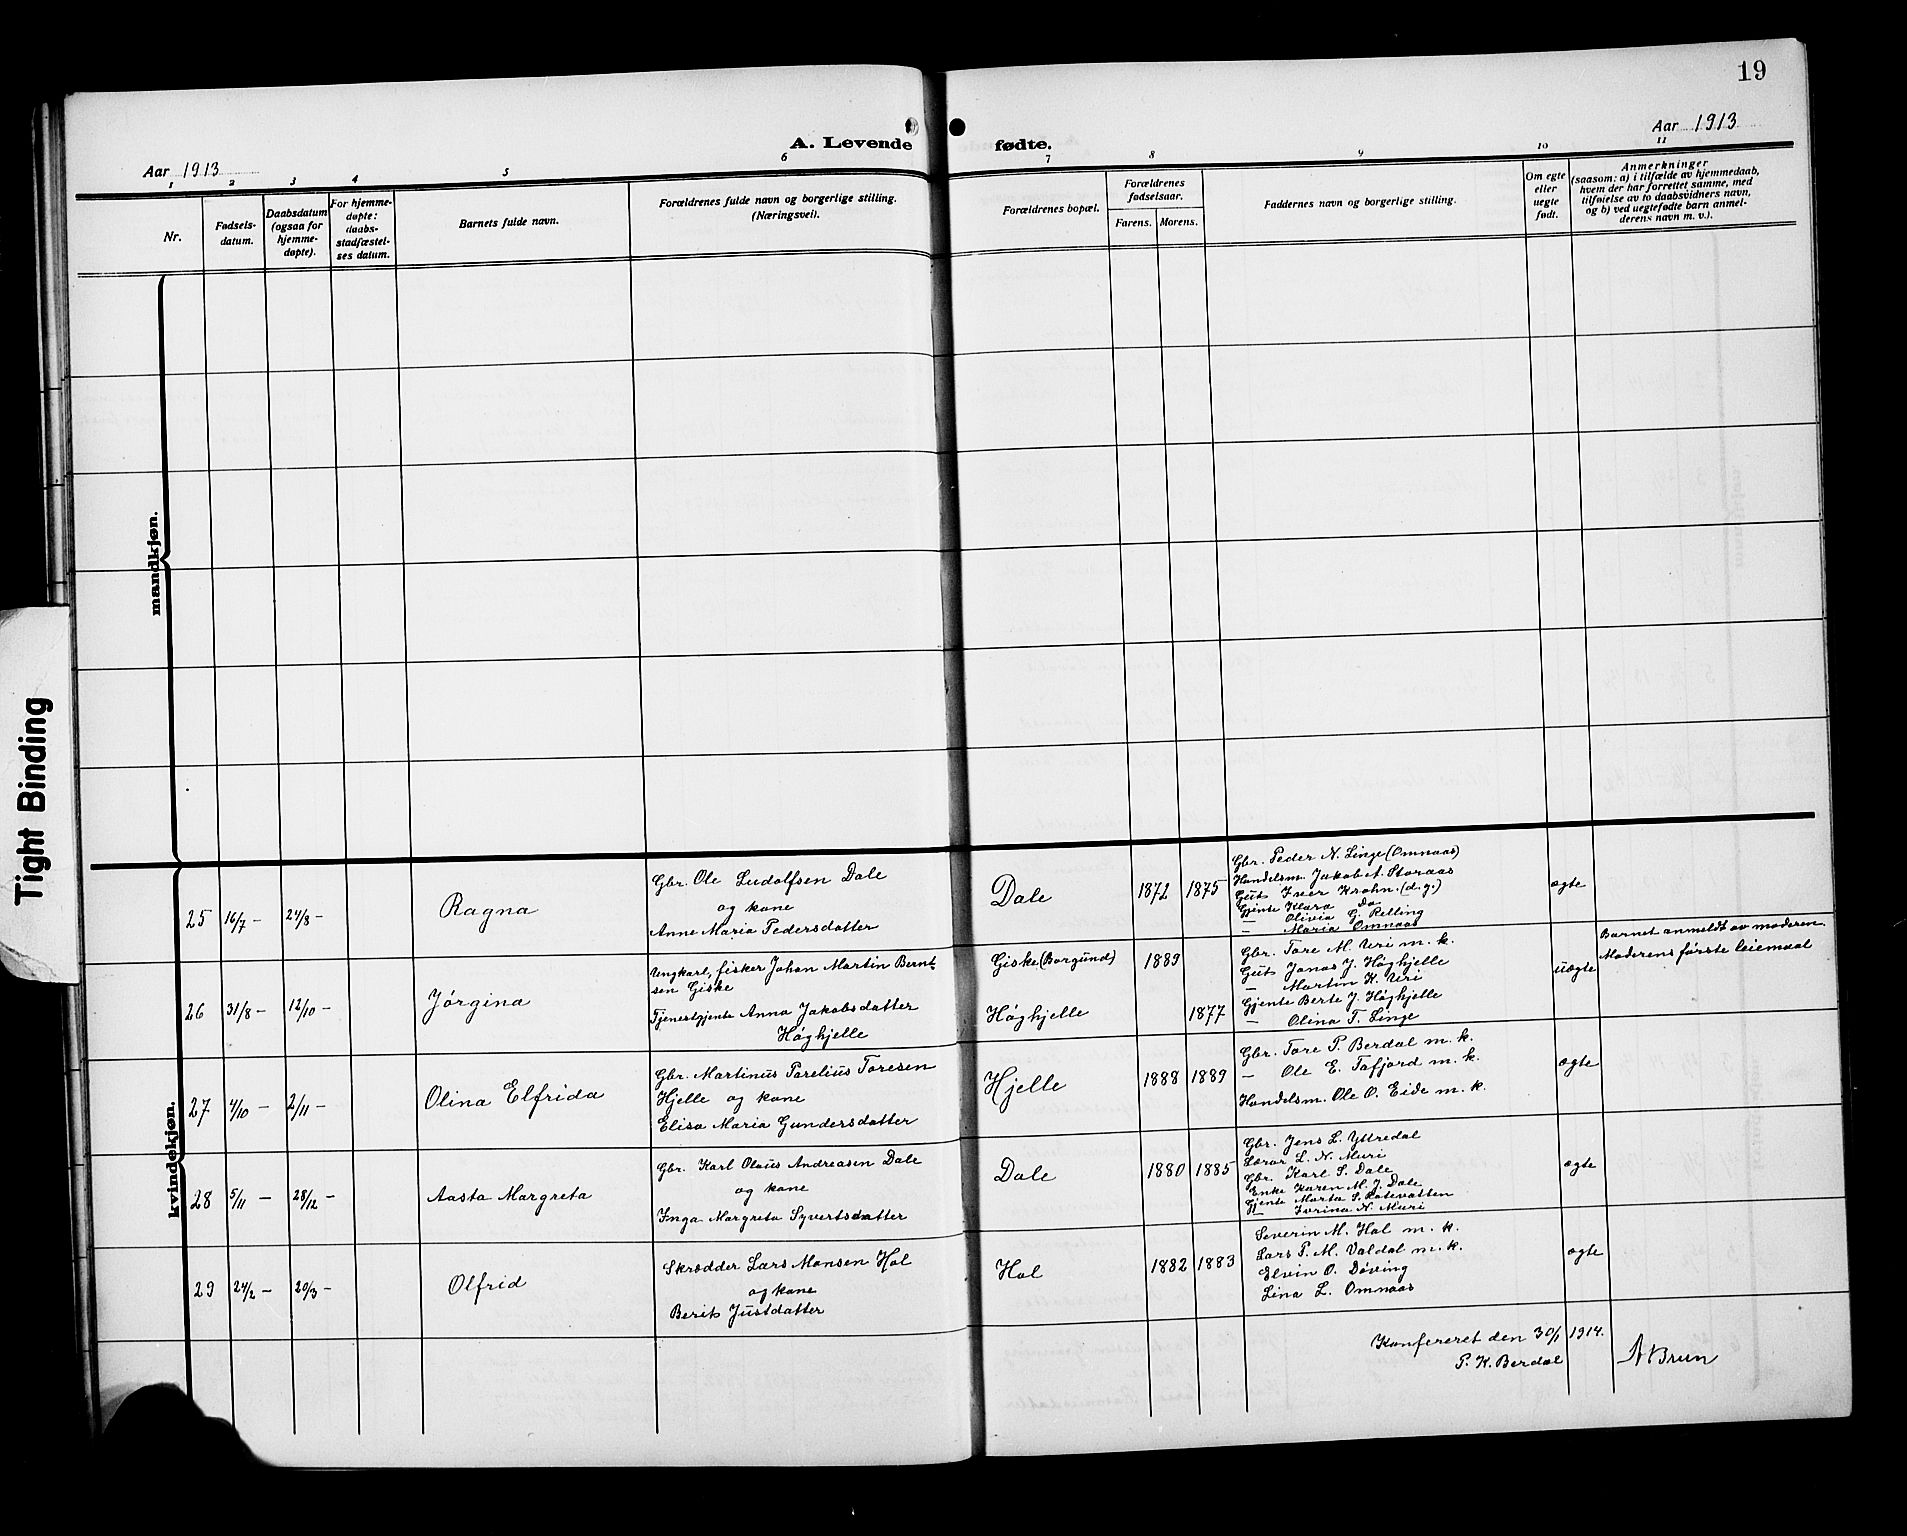 19
A. Levende fødte.
Aar 1913
Aar 1913
1 2 3 4 5 6 7 8 9 10 11
Nr.
Fødsels-
datum.
Daabsdatum
(ogsaa for
hjemme-
døpte).
For hjemme-
døpte:
daabs-
stadfæstel-
ses datum.
Barnets fulde navn.
Forældrenes fulde navn og borgerlige stilling.
(Næringsvei).
Forældrenes bopæl.
Forældrenes
fødselsaar.
Farens. Morens.
Faddernes navn og borgerlige stilling.
Om egte
eller
uegte
født.
Anmerkninger
(saasom: a) i tilfælde av hjemmedaab,
hvem der har forrettet samme, med
tilføielse av to daabsvidners navn,
og b) ved uegtefødte barn anmel-
derens navn m. v.).
mandkjøn.
Tight Binding
kvindekjøn.
25 16/7 – 24/8 –
Ragna
Gbr. Ole Ludolfsen Dale
og kone
Anne Maria Pedersdatter
Dale
1872 1875
Gbr. Peder N. Linge (Omnaas)
Handelsm. Jakob A. Storaas
Gut Iver Krohn. (d.g.)
Gjente Klara Do
— Olivia G. Relling
— Maria Omnaas
egte
26 31/8 – 12/10 –
Jørgina
Ungkarl, fisker Johan Martin Bernt-
sen Giske
Tjenestgjente Anna Jakobsdatter
Høghjelle
Giske (Borgund)
Høghjelle
1889
1877
Gbr. Tore M. Uri m. k.
Gut Jonas J. Høghjelle
— Martin K. Uri
Gjente Berte J. Høghjelle
— Olina T. Linge
uegte
Barnet anmeldt av moderen.
Moderens første leiemaal
27 4/10 – 2/11 –
Olina Elfrida
Gbr. Martinus Parelius Toresen
Hjelle og kone
Elisa Maria Gundersdatter
Hjelle
1888 1889
Gbr. Tore P. Berdal m. k.
— Ole E. Tafjord m. k.
Handelsm. Ole O. Eide m. k.
egte
28 5/11 – 28/12 –
Aasta Margreta
Gbr. Karl Olaus Andreasen Dale
og kone
Inga Margreta Syvertsdatter
Dale
1880 1885
Gbr. Jens L. Yttredal
Lærer L. N. Muri
Gbr. Karl S. Dale
Enke Karen M. J. Dale
Gjente Marta S. Rotevatten
— Ivrina N. Muri
egte
29 24/2 – 20/3 –
Olfrid
Skrædder Lars Monsen Hol
og kone
Berit Justdatter
Hol
1882 1883
Severin M. Hol m. k.
Lars P. M. Valdal m. k.
Elvin O. Døving
Lina L. Omnaas
egte
Konfereret den 30/1 1914.
P. K. Berdal
A Brun